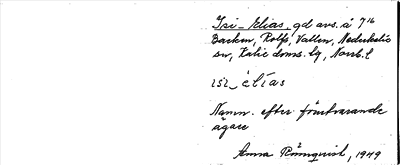 Isi-Elias, gd avs. å 7¹⁶
Backen, Rolfs, Vallen, Nederkalix
sn, Kalix doms. lg, Norrb. l
ɩsɩ_èlías
Namn efter förutvarande
ägare
Anna Rönnqvist, 1949